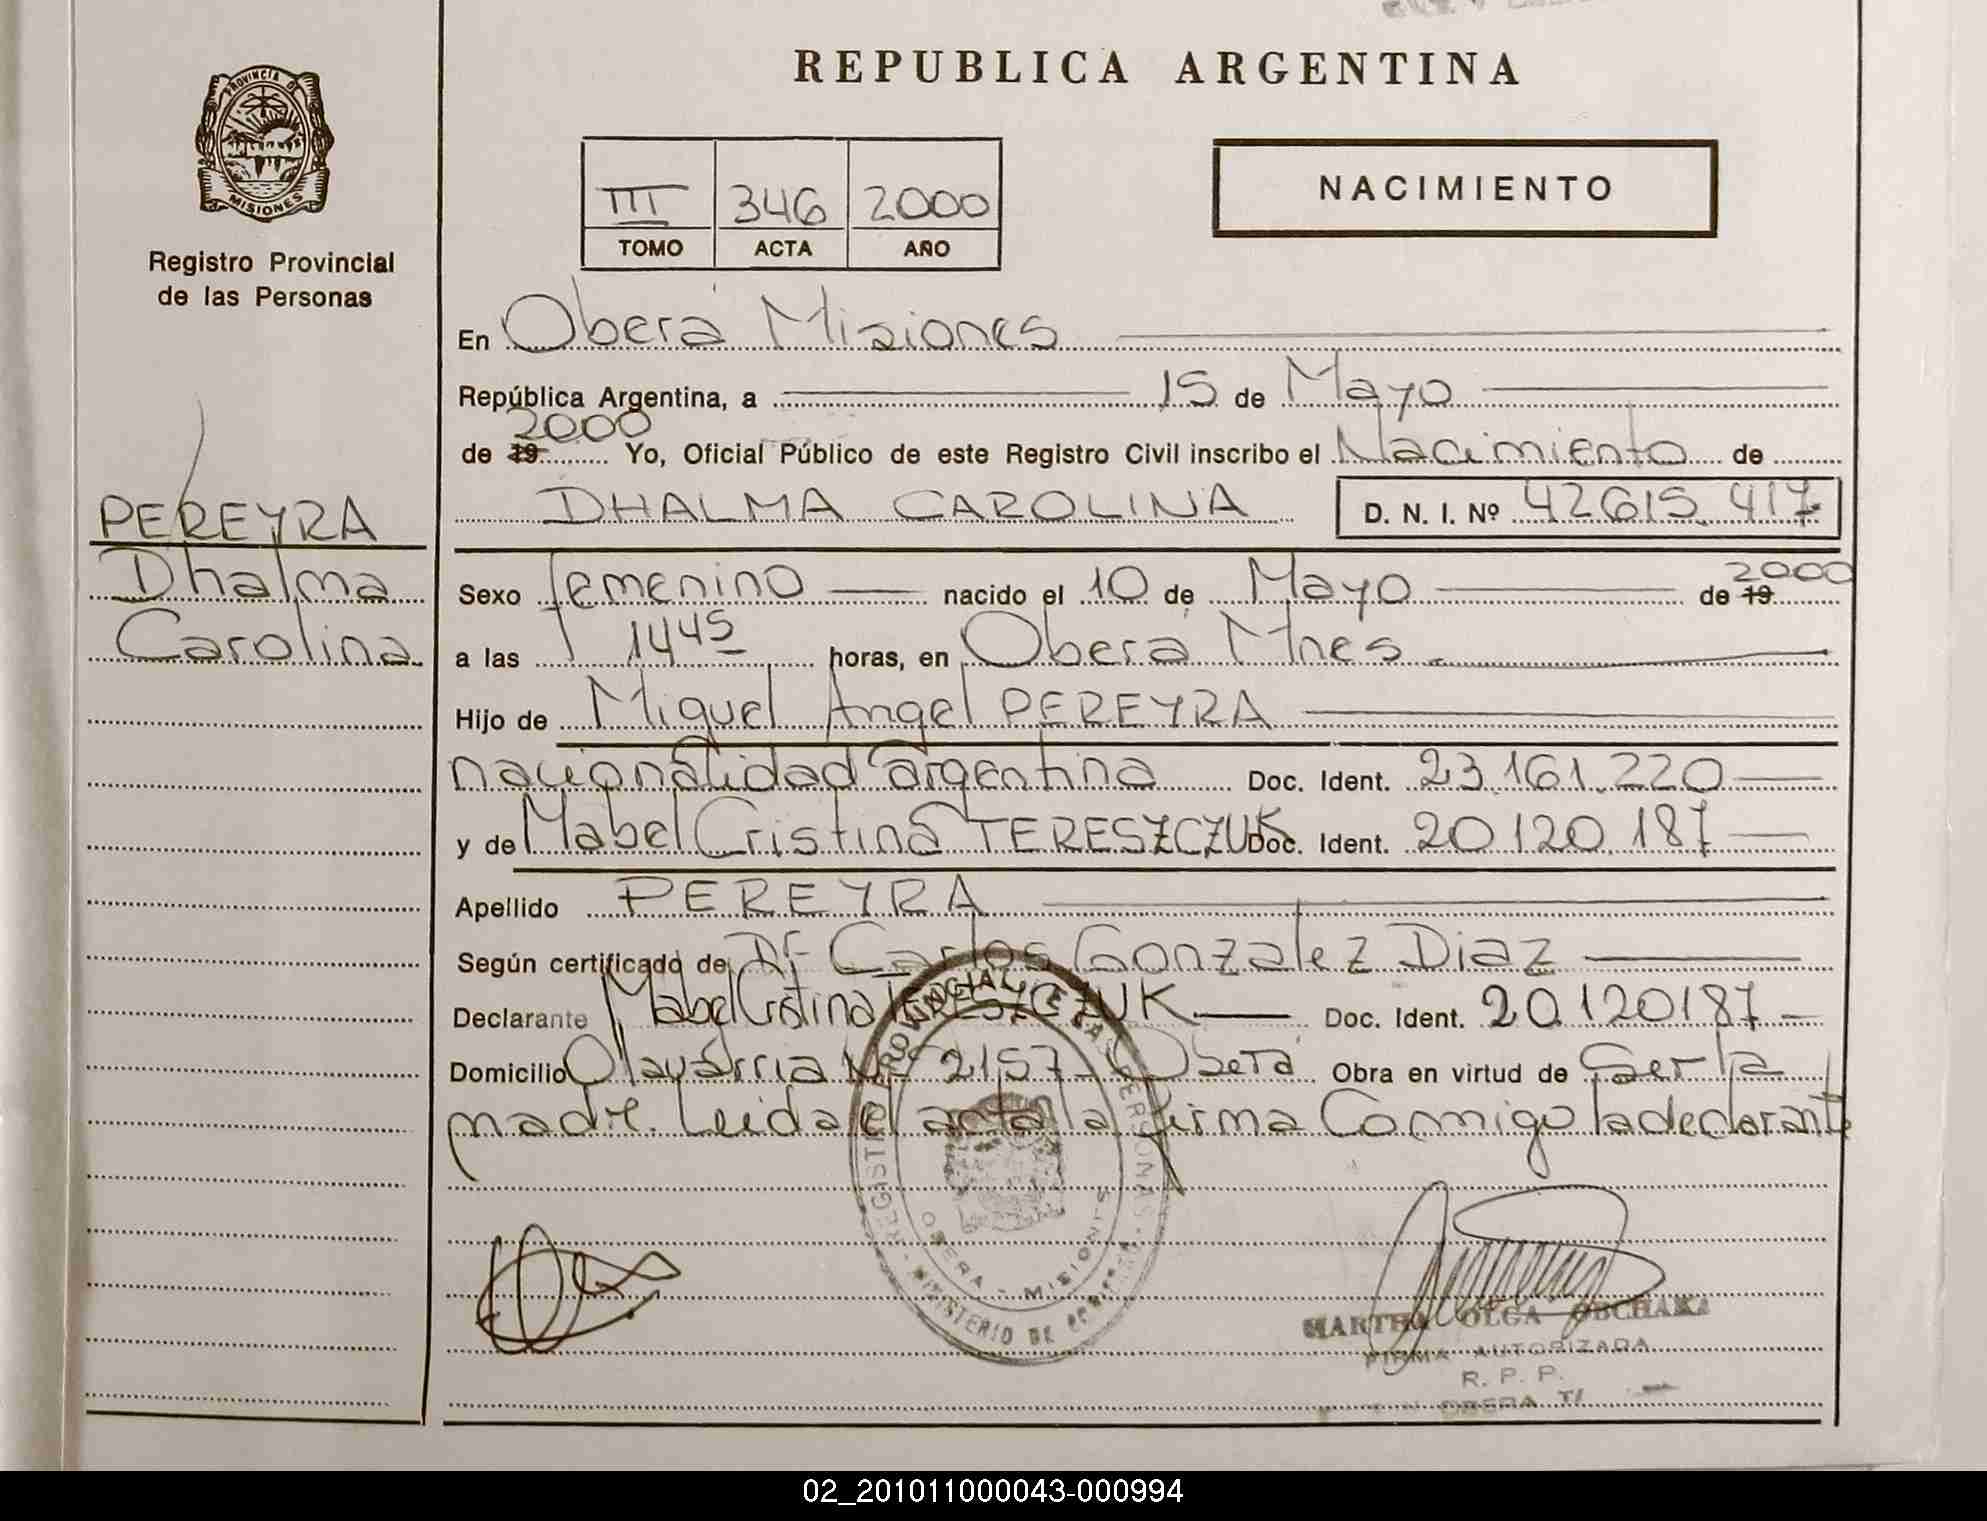 REPUBLICA ARGENTINA
PROVINCIA DE
MISIONES
Registro Provincial
de las Personas
NACIMIENTO
III 346 2000
TOMO ACTA AÑO
En Oberá Misiones
República Argentina, a 15 de Mayo
de 19 2000 Yo, Oficial Público de este Registro Civil inscribo el Nacimiento de
DHALMA CAROLINA D. N. I. Nº 42615.417
PEREYRA
Dhalma
Carolina
Sexo femenino nacido el 10 de Mayo de 19 2000
a las 1445 horas, en Oberá Mnes
Hijo de Miguel Angel PEREYRA
nacionalidad argentina Doc. Ident. 23.161.220
y de Mabel Cristina TERESZCZUK Doc. Ident. 20.120.187
Apellido PEREYRA
Según certificado de Dr Carlos Gonzalez Diaz
Declarante Mabel Cristina TERESZCZUK Doc. Ident. 20.120187
Domicilio Olavarria Nº 2157 Oberá Obra en virtud de Ser la
madre. Leida el acta la firma Conmigo la declarante
REGISTRO PROVINCIAL DE LAS PERSONAS
OBERA - MISIONES
MINISTERIO DE
MARTHA OLGA OBCHAKA
FIRMA AUTORIZADA
R. P. P.
OBERA
02_201011000043-000994